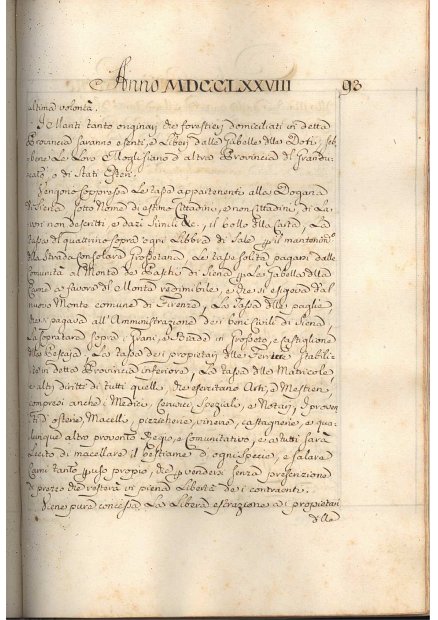 Anno MDCCLXXVIII 93
ultima volontà.
I Mariti tanto originarj che forestieri domiciliati in detta
Provincia saranno esenti, e liberi dalle Gabelle delle Doti, seb-
bene le loro Mogli siano d'altra Provincia del Grandu-
cato, o di Stati Esteri.
Vengono soppresse le tasse appartenenti alla Dogana
di Siena sotto Nome di estimo Cittadini, e non Cittadini, di La-
vori non descritti, e dazi simili &c., il bollo alla Carta, la
tassa del quattrino sopra ogni Libbra di Sale p il mantenim.º
della Strada Consolare Grossetana, le tasse solite pagarsi dalle
Comunità al Monte dei Paschi di Siena p la Gabella della
Carne a favore del Monte redimibile, e che si esigeva dal
nuovo Monte comune di Firenze, la tassa delle paglie,
che si pagava all'Amministrazione dei beni Civili di Siena,
la sopratassa sopra i Grani, e Biade in Grosseto, e Castiglione
della Pescaja, la tassa dei proprietarj delle Ferriere stabili-
te in detta Provincia inferiore, la tassa delle Matricole,
e altri diritti di tutti quelli, che esercitano Arti, e Mestieri
compresi anche i Medici, Cerusici, Speziali, e Notari, I proven-
ti d'osterie, Macelli, pizzicherie, vinerie, castagnerie, e qua-
lunque altro provento Regio, e Comunitativo, e a tutti sarà
lecito di macellare il bestiame d'ogni specie, e salare
Carne tanto p uso proprio, che p vendere senza
di prezzo che resterà in piena Libertà dei contraenti.
Viene pure concessa la libera estrazione ai proprietarj
delle